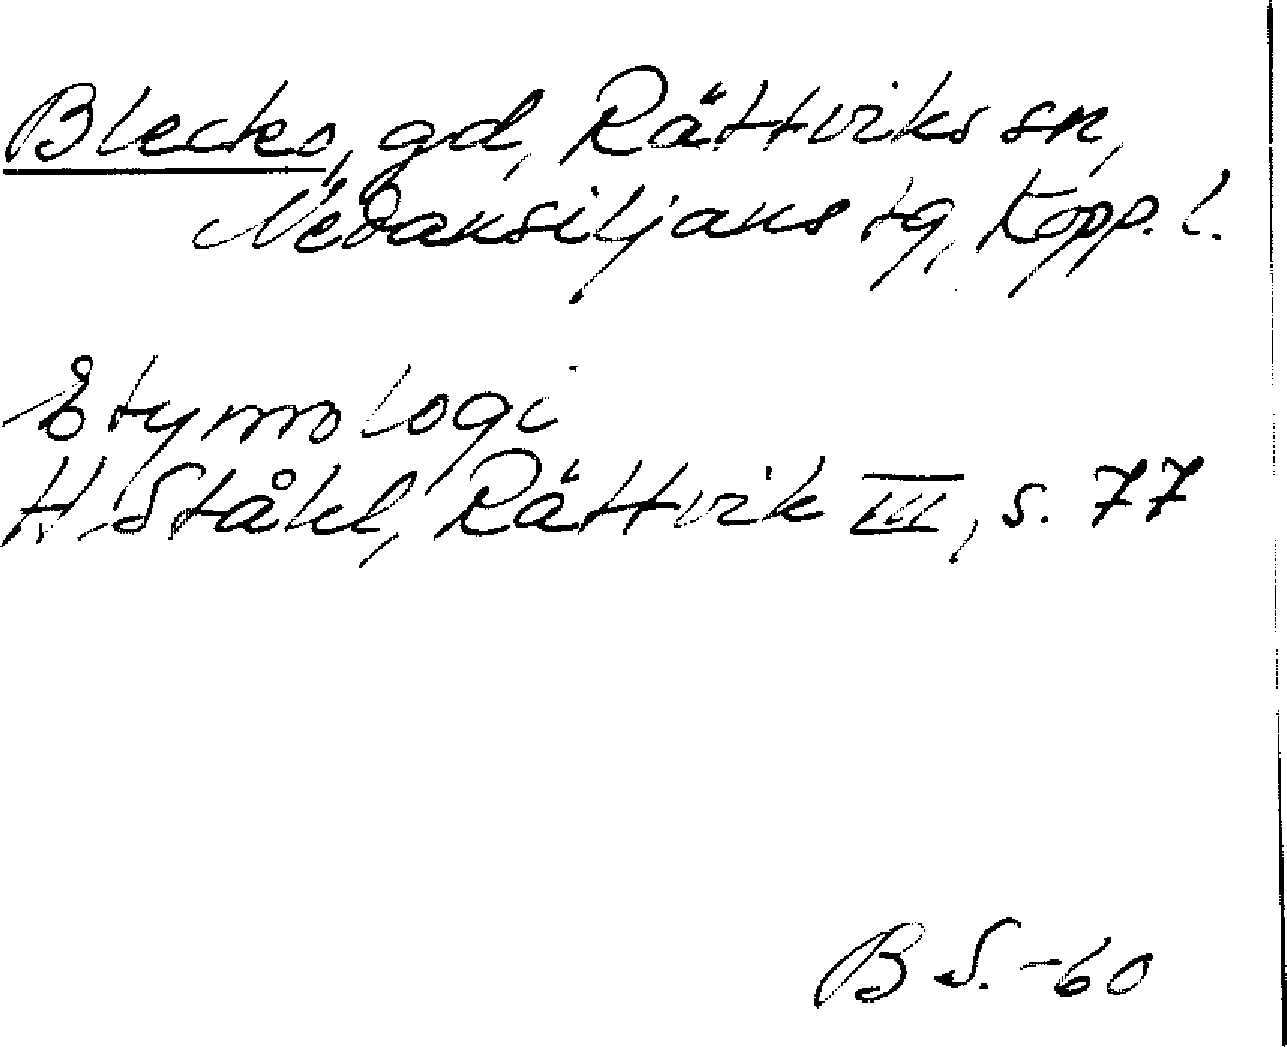 Blecko, gd, Rättviks sn,
Nedansiljans tg, Kopp. l.
Etymologi
H. Ståhl, Rättvik III, s. 77
B S. -60